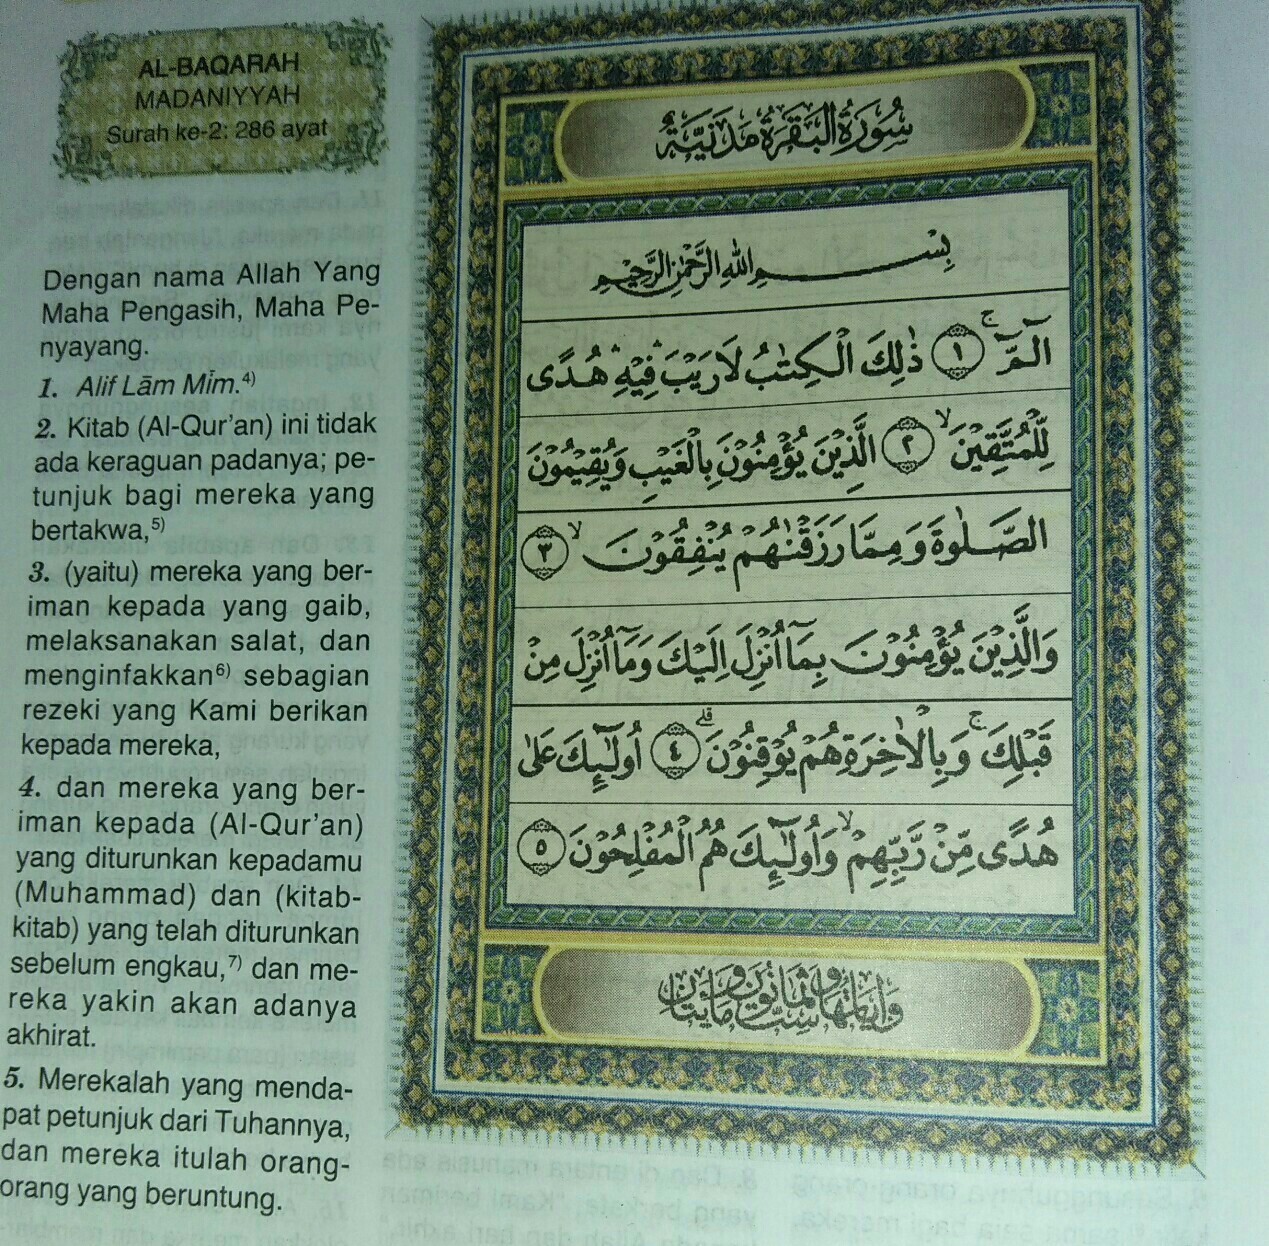 AL-BAQARAH
MADANIYYAH
Surah ke-2: 286 ayat
Dengan nama Allah Yang
Maha Pengasih, Maha Pe-
nyayang.
1. Alif Lām Mīm.4)
2. Kitab (Al-Qur'an) ini tidak
ada keraguan padanya; pe-
tunjuk bagi mereka yang
bertakwa,5)
3. (yaitu) mereka yang ber-
iman kepada yang gaib,
melaksanakan salat, dan
menginfakkan6) sebagian
rezeki yang Kami berikan
kepada mereka,
4. dan mereka yang ber-
iman kepada (Al-Qur'an)
yang diturunkan kepadamu
(Muhammad) dan (kitab-
kitab) yang telah diturunkan
sebelum engkau,7) dan me-
reka yakin akan adanya
akhirat.
5. Merekalah yang menda-
pat petunjuk dari Tuhannya,
dan mereka itulah orang-
orang yang beruntung.
سُورَةُ الْبَقَرَةِ مَدَنِيَّةٌ
بِسْمِ اللّٰهِ الرَّحْمٰنِ الرَّحِيْمِ
الۤمّۤ ۚ ١ ذٰلِكَ الْكِتٰبُ لَا رَيْبَ ۛ فِيْهِ ۛ هُدًى
لِّلْمُتَّقِيْنَ ۙ ٢ الَّذِيْنَ يُؤْمِنُوْنَ بِالْغَيْبِ وَيُقِيْمُوْنَ
الصَّلٰوةَ وَمِمَّا رَزَقْنٰهُمْ يُنْفِقُوْنَ ۙ ٣
وَالَّذِيْنَ يُؤْمِنُوْنَ بِمَآ اُنْزِلَ اِلَيْكَ وَمَآ اُنْزِلَ مِنْ
قَبْلِكَ ۚ وَبِالْاٰخِرَةِ هُمْ يُوْقِنُوْنَ ۗ ٤ اُولٰۤىِٕكَ عَلٰى
هُدًى مِّنْ رَّبِّهِمْ ۙ وَاُولٰۤىِٕكَ هُمُ الْمُفْلِحُوْنَ ٥
وَاٰيَاتُهَا سِتٌّ وَثَمَانُوْنَ وَمِائَتَانِ